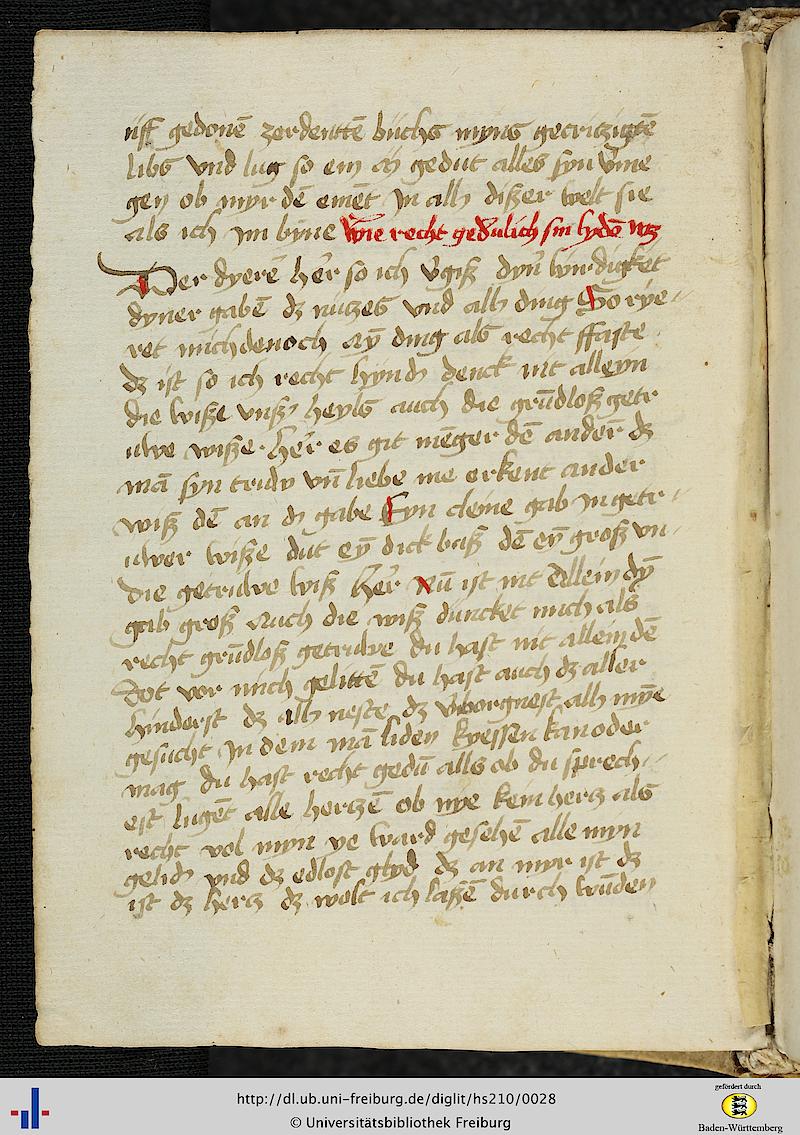 uff gedonē zerdentē büchs myns gecrúzigtē
libs vnd lug so ein gedut alles syn
gen ob myr dē einēt Jn allē dißer welt sie
als ich jm byne Wie recht gedulich sin lydē wz
Der dyerē her so ich ṽgiß dyn̄ wirdigket
dyner gabē dz nutzes vnd allē ding So rye-
ret mich denoch eyn̄ ding als recht ffaste
dz ist so ich recht denck nit alleyn
die wiße vnß heyls auch die grūdloß getr
uwe wiße her es git mēger dē ander dz
mā syn truw vn̄ liebe me erkent ander
wiß dē an gabe Eyn cleine gab Jn getr-
uwer wiße dut eȳ dick baß dē eȳ groß vn-
die getruwe wiß her Nū ist nit allein dȳ
gab groß Auch die wiß duncket mich als
recht grūdloß getruwe du hast nit allein dē
Dot vor mich gelittē du hast auch dz aller
hinderst dz neste dz ṽborgnest
gesucht Jn dem mā liden kan oder
mag du hast recht gedū alls ob du sprech-
est lugēt alle hertzē ob nye kein hertz als
recht vol myn ye ward gesehē alle myn
gelid vnd dz edlost glyd dz an myr ist dz
ist dz hertz dz wolt ich laßē durch wūden
http://dl.ub.uni-freiburg.de/diglit/hs210/0028
© Universitätsbibliothek Freiburg
gefördert durch
Baden-Württemberg